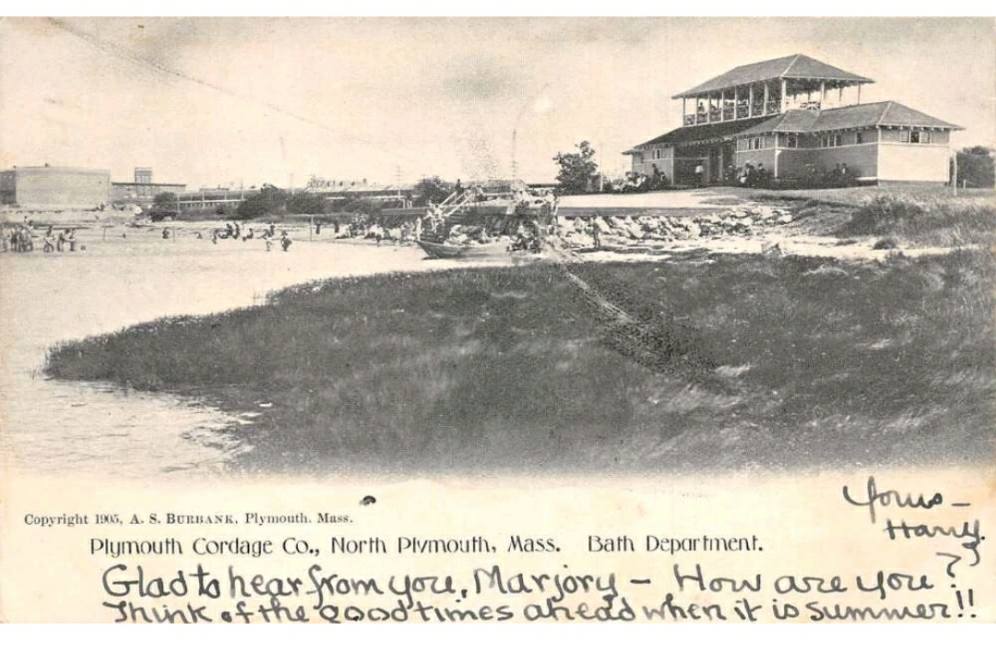 Copyright 1905, A. S. BURBANK, Plymouth, Mass.
Plymouth Cordage Co., North Plymouth, Mass. Bath Department.
Glad to hear from you, Marjory - How are you?
Think of the good times ahead when it is summer!!
Yours -
Harry.